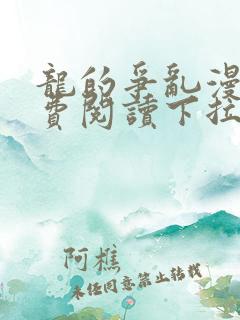 龍的爭亂漫
費閱讀下拉
阿樵
未經同意禁止轉載